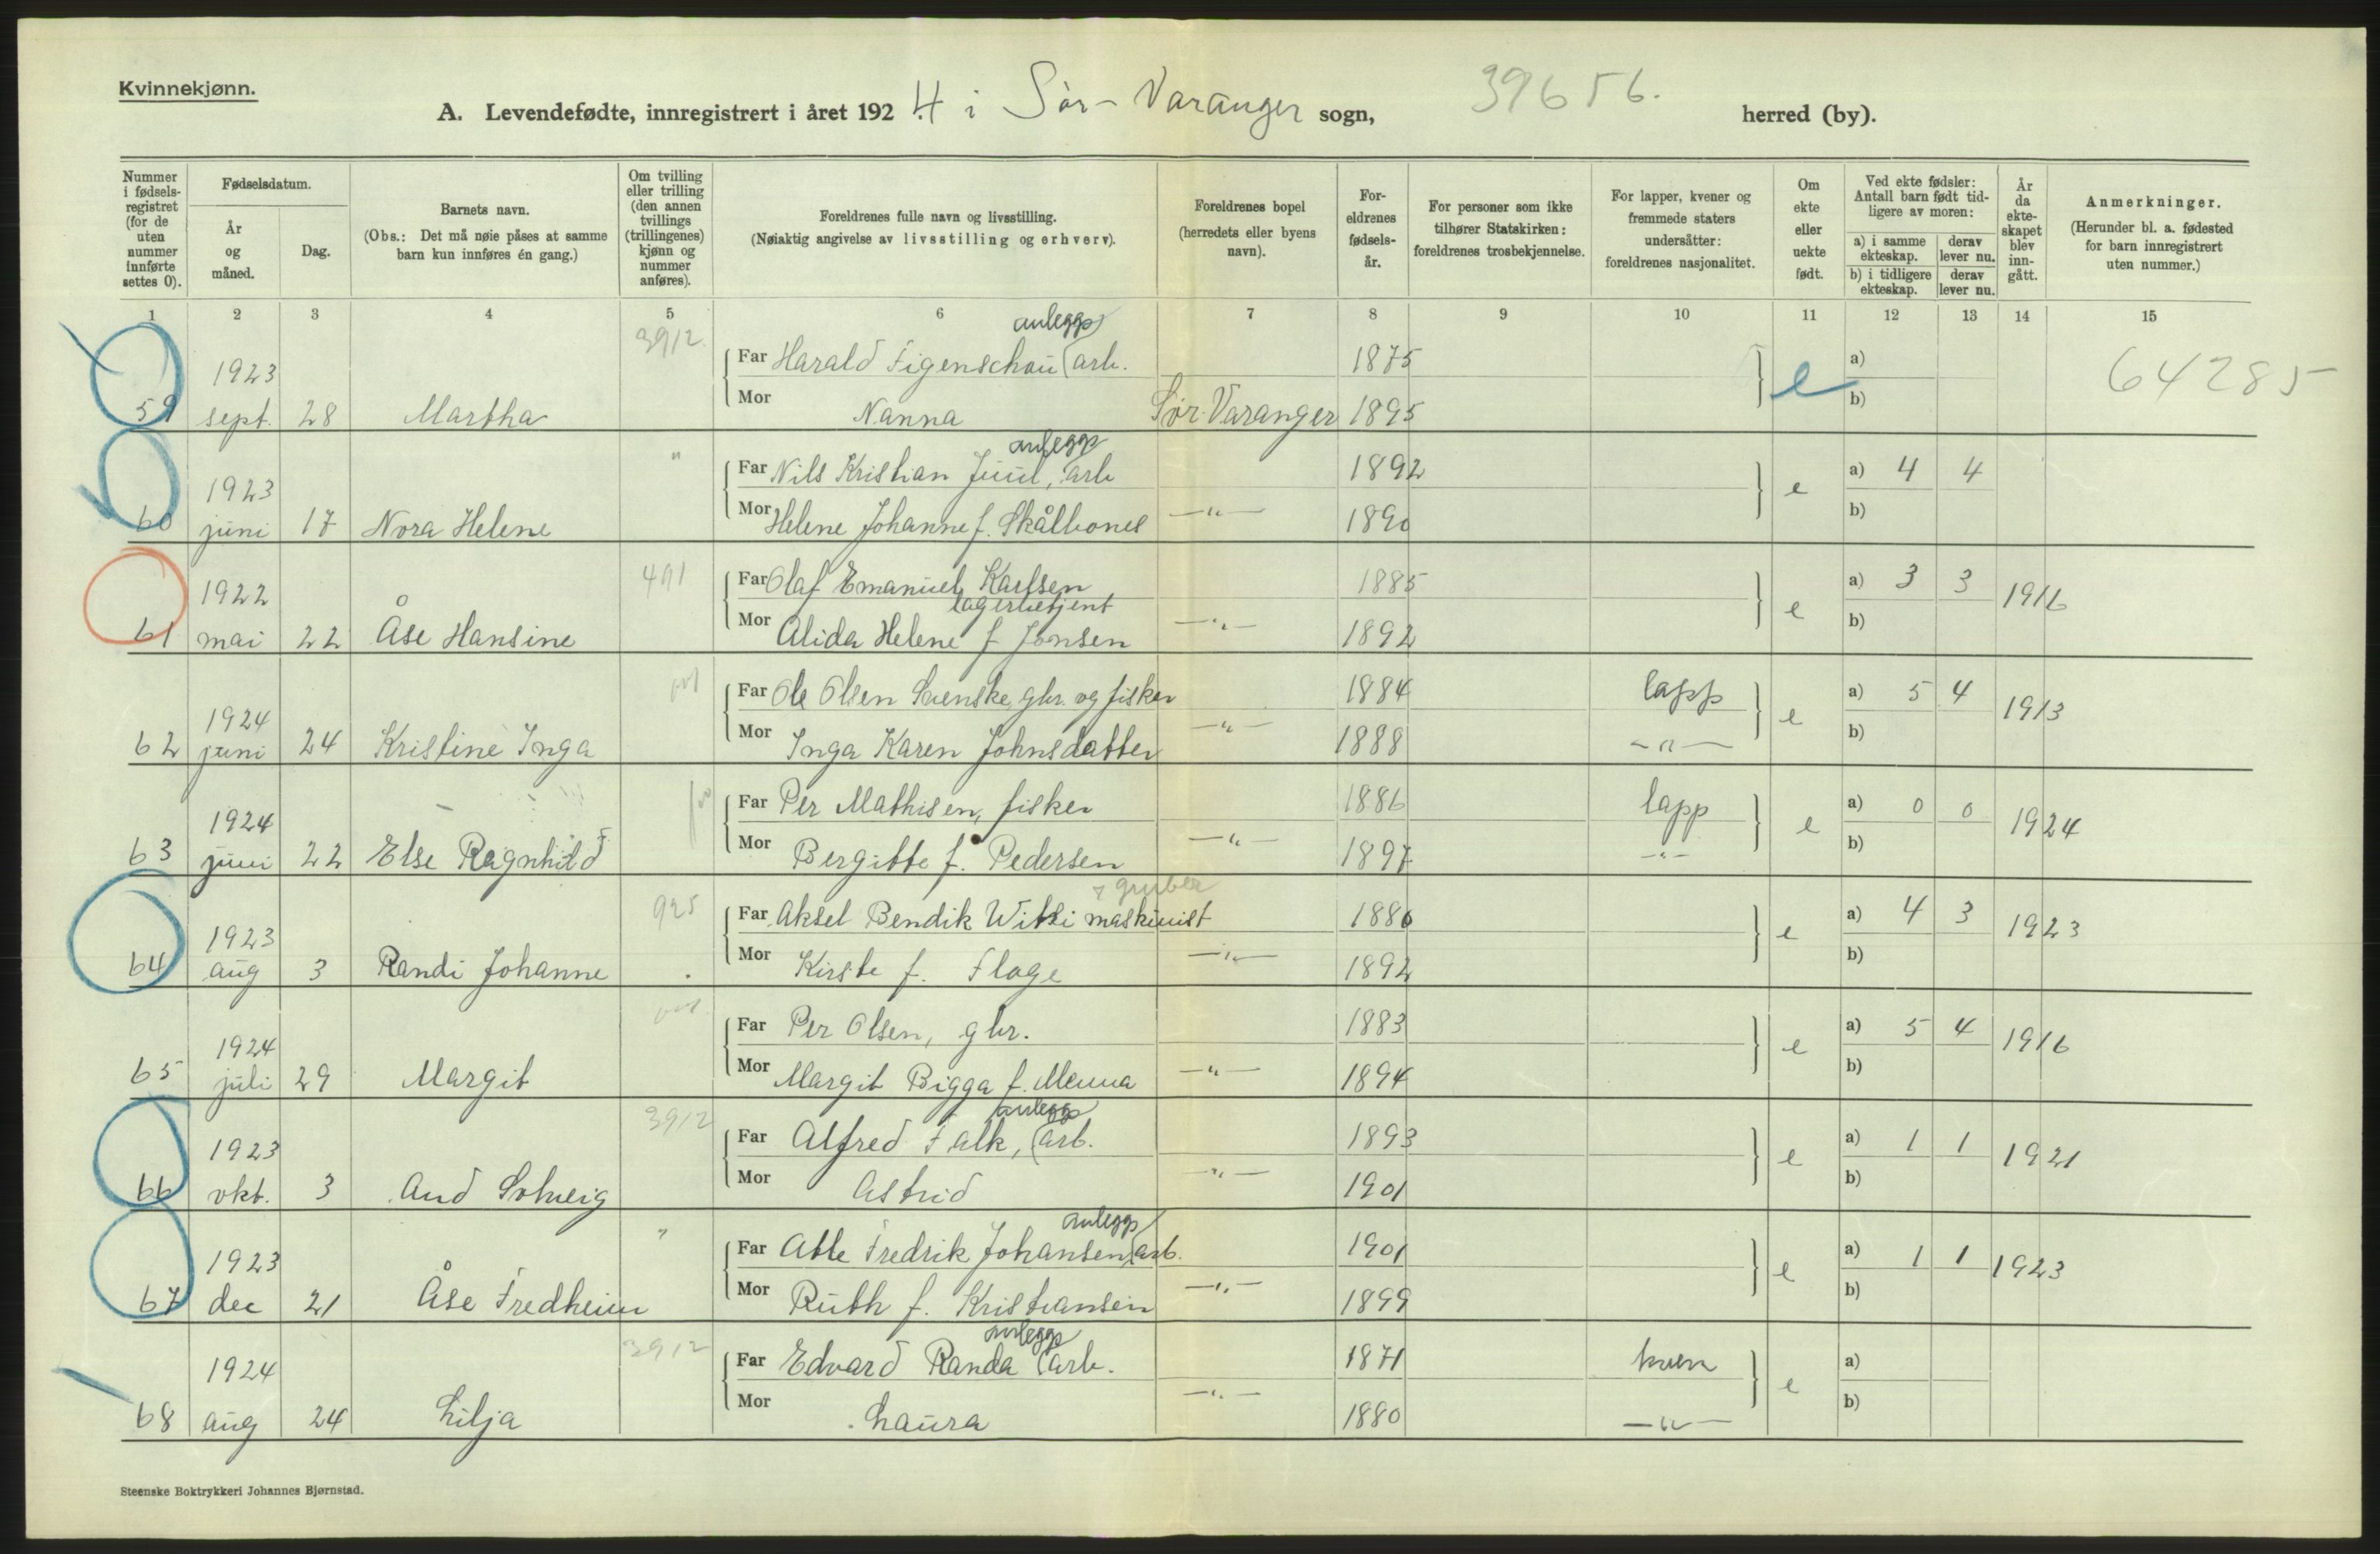 Kvinnekjønn.
A. Levendefødte, innregistrert i året 192 4 i Sör-Varanger sogn, 39656. herred (by).
Nummer i fødsels-registret (for de uten nummer innførte settes 0).
Fødselsdatum.
År og måned.
Dag.
Barnets navn.
(Obs.: Det må nøie påses at samme barn kun innføres én gang.)
Om tvilling eller trilling (den annen tvillings (trillingenes) kjønn og nummer anføres).
Foreldrenes fulle navn og livsstilling.
(Nøiaktig angivelse av livsstilling og erhverv).
Foreldrenes bopel (herredets eller byens navn).
For-eldrenes fødsels-år.
For personer som ikke tilhører Statskirken: foreldrenes trosbekjennelse.
For lapper, kvener og fremmede staters undersåtter: foreldrenes nasjonalitet.
Om ekte eller uekte født.
Ved ekte fødsler: Antall barn født tid-ligere av moren:
a) i samme ekteskap.
derav lever nu.
b) i tidligere ekteskap.
derav lever nu.
År da ekte-skapet blev inn-gått.
Anmerkninger.
(Herunder bl. a. fødested for barn innregistrert uten nummer.)
1 2 3 4 5 6 7 8 9 10 11 12 13 14 15
3912 anleggs
1923 Far Harald Figenschou arb. 1875 e a) 64285
59 sept. 28 Martha Mor Nanna Sör-Varanger 1895 b)
" anleggs
1923 Far Nils Kristian Juul, arb 1892 e a) 4 4
60 juni 17 Nora Helene Mor Helene Johanne f. Skålbones —"— 1890 b)
1922 491 Far Olaf Emanuel Karlsen 1885 e a) 3 3 1916
lagerbetjent
61 mai 22 Åse Hansine Mor Alida Helene f Jonsen —"— 1892 b)
1924 Far Ole Olsen Svenske, gbr. og fisker 1884 lapp e a) 5 4 1913
62 juni 24 Kristine Inga Mor Inga Karen Johnsdatter —"— 1888 —"— b)
1924 Far Per Mathisen, fisker 1886 lapp e a) 0 0 1924
63 juni 22 Else Ragnhild Mor Bergitte f. Pedersen —"— 1897 —"— b)
925 gruber
1923 Far Aksel Bendik Witsi maskinist 1880 e a) 4 3 1923
64 aug 3 Randi Johanne Mor Kirste f. Flage —"— 1892 b)
1924 Far Per Olsen, gbr. 1883 e a) 5 4 1916
65 juli 29 Margit Mor Margit Bigga f. Menna —"— 1894 b)
3912 anleggs
1923 Far Alfred Falk, arb. 1893 e a) 1 1 1921
66 okt. 3 Aud Solveig Mor Astrid —"— 1901 b)
" anleggs
1923 Far Atle Fredrik Johansen, arb. 1901 e a) 1 1 1923
67 dec 21 Åse Fredheim Mor Ruth f. Kristiansen —"— 1899 b)
3912 anleggs
1924 Far Edvard Randa arb. 1871 kven e a)
68 aug 24 Lilja Mor Laura —"— 1880 —"— b)
Steenske Boktrykkeri Johannes Bjørnstad.